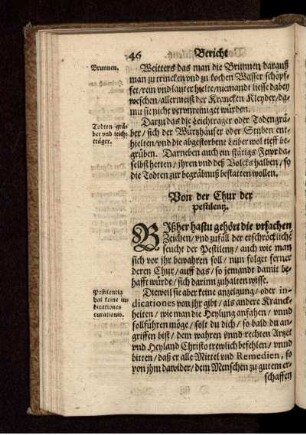 46 Bericht
Brunnen. Weitters das man die Brunnen darauß
man zu trincken vnd zu kochen Wasser schöpf-
fet / rein vnd lauter hielte / niemandt liesse dabey
wäschen / allermeist der Krancken Kleyder / da-
mit sie nicht verunreiniget würden.
Todten grä-
ber vnd leich-
träger.
Darzu das die Leichträger oder Todtengrä-
ber / sich der Würtzhäuser oder Stuben ent-
hielten / vnd die abgestorbene Leiber wol tieff be-
grüben. Darneben auch ein stätigs Fewr da-
selbst hetten / jhren vnd deß Volcks halben / so
die Todten zur begräbnuß bestatten wollen.
Von der Chur der
pestilentz.
Bißher hastu gehört die vrsachen
Zeichen / vnd zufäll der erschröckliche
seucht der Pestilentz / auch wie man
sich vor jhr bewahren soll / nun folget ferner
deren Chur / auff das / so jemandt damit be-
hafft würde / sich darinn zuhalten wisse.
Pestilentz
hat keine in-
dicationes
curationum.
Dieweil sie aber keine anzeigung / oder in-
dicationes von jhr gibt / als andere Kranck-
heiten / wie man die Heylung anfahen / vnnd
vollführen möge / solt du dich / so bald du an-
griffen bist / dem wahren vnnd rechten Artzet
vnd Heyland Christo trewlich befehlen / vnnd
bitten / daß er alle Mittel vnd Remedien, so
von jhm darwider / dem Menschen zu gutem er-
schaffen